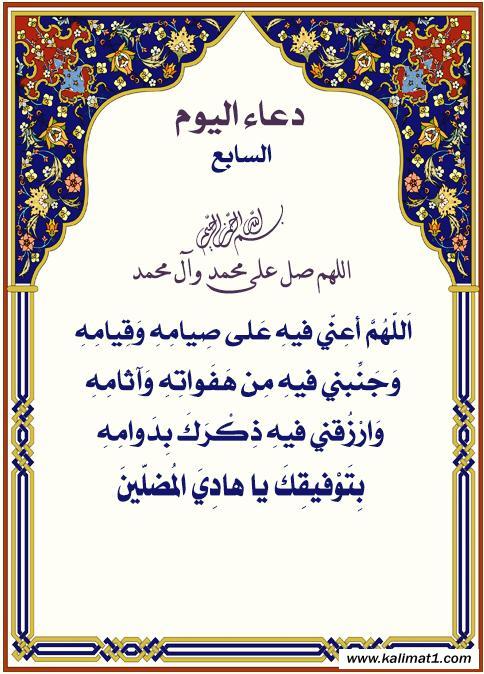 دعاء اليوم
السابع
بسم الله الرحمن الرحيم
اللهم صل على محمد وآل محمد
اَللّهُمَّ أعِنّي فيهِ عَلى صِيامِهِ وَقِيامِهِ
وَجَنِّبني فيهِ مِن هَفَواتِهِ وَآثامِهِ
وَارْزُقني فيهِ ذِكْرَكَ بِدَوامِهِ
بِتَوْفيقِكَ يا هادِيَ المُضلّينَ
www.kalimat1.com